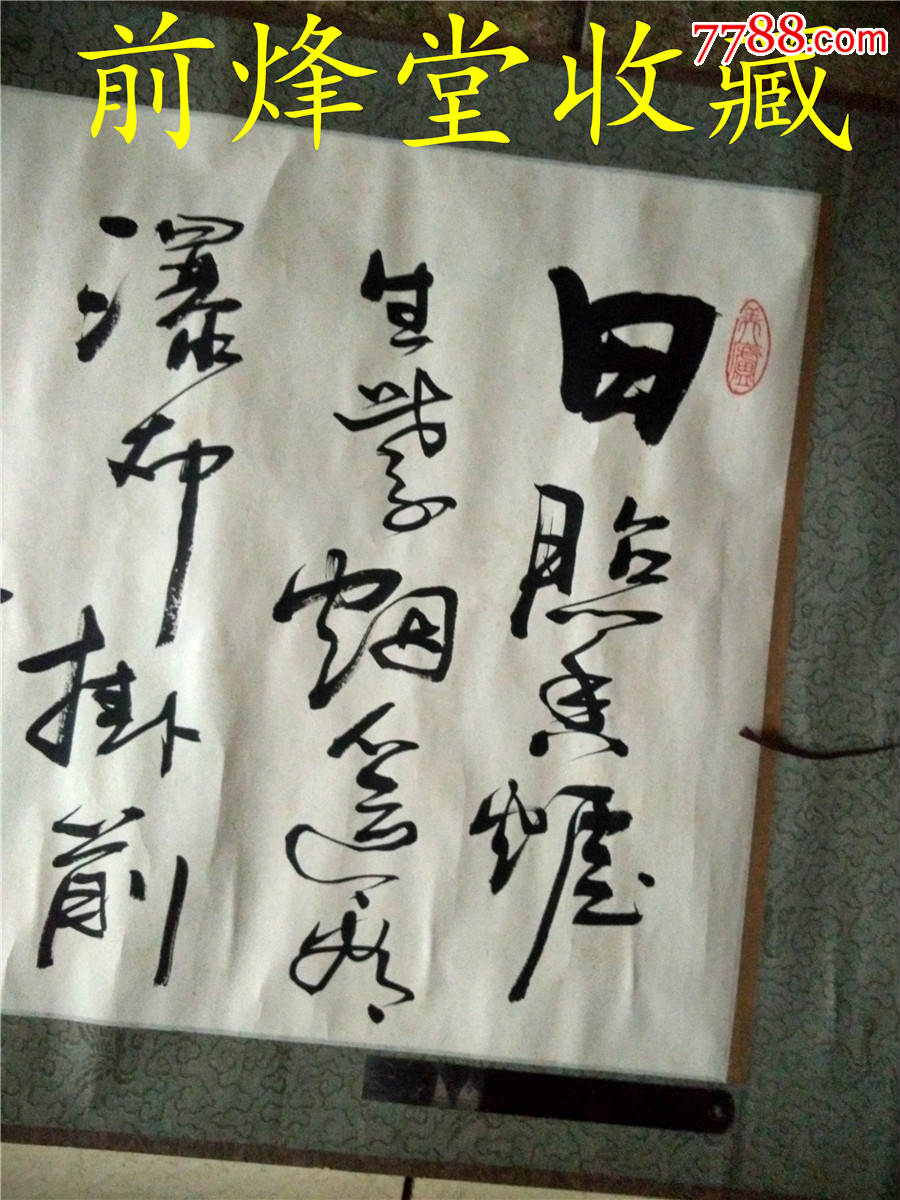 7788.com
前烽堂收藏
日照香炉
生紫烟遥看
瀑布掛前